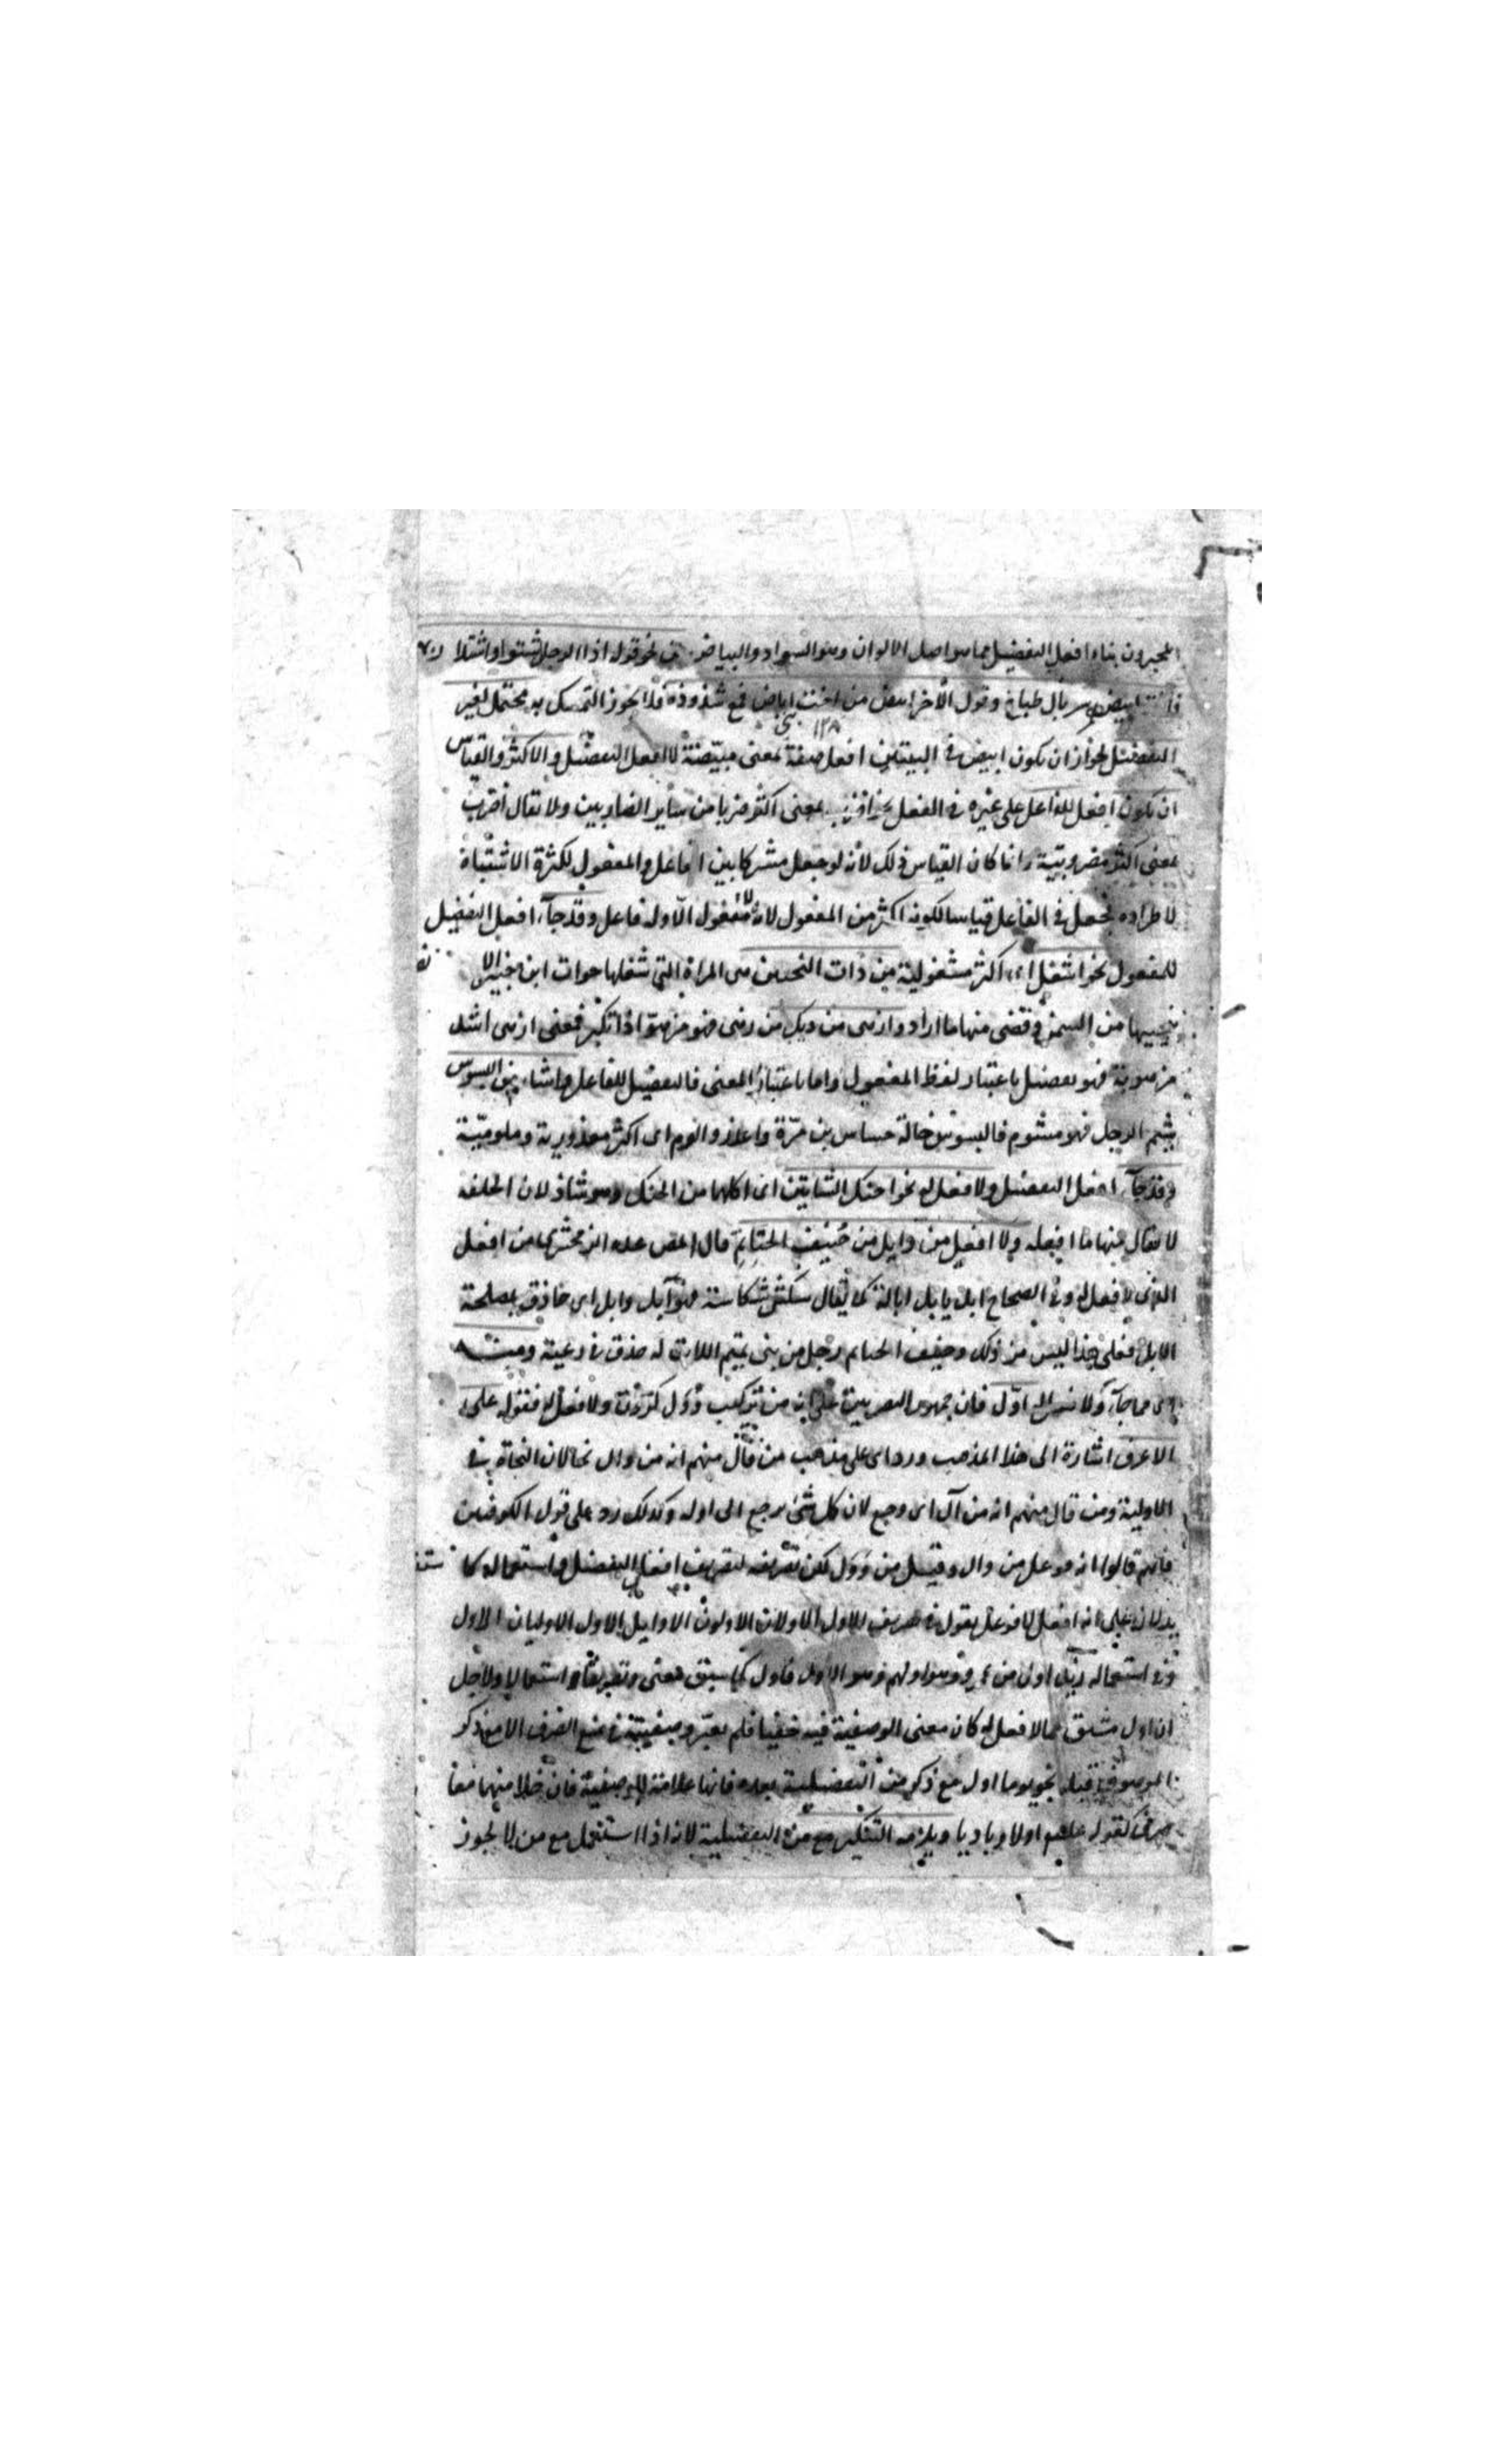 المجيزون بناء افعل التفضيل مما هو اصل الالوان وهو السواد والبياض نحو قوله اذا الرجال شتوا واشتد
ابيضهم سربال طباخ وقول الآخر ابيض من اخت بني اباض فمع شذوذه فلا يجوز التمسك به محتمل لغير
١٢٨
التفضيل لجواز ان يكون ابيض في البيتين افعل صفة بمعنى مبيضة لا افعل التفضيل والاكثر والقياس
ان يكون افعل للفاعل على غيره في الفعل نحو اضرب بمعنى اكثر ضربا من سائر الضاربين ولا يقال اضرب
بمعنى اكثر مضروبية وانما كان القياس ذلك لأنه لو جعل مشتركا بين الفاعل والمفعول لكثرة الاشتباه
لاطراده فجعل في الفاعل قياسا لكونه اكثر من المفعول لانه لا مفعول الا وله فاعل وقد جاء افعل التفضيل
للمفعول نحو اشغل اي اكثر مشغولية من ذات النحيين هي المراة التي شغلها خوات ابن جبير الا
نحييها من السمن فقضى منها ما اراد وازهى من ديك من زهى فهو مزهو اذا تكبر فمعنى ازهى اشد
مزهوية فهو تفضيل باعتبار لفظ المفعول واما باعتبار المعنى فالتفضيل للفاعل واشأم من البسوس
شئم الرجل فهو مشئوم فالبسوس خالة جساس بن مرة واعذر والوم اى اكثر معذورية وملومية
وقد جاء افعل التفضيل ولا فعل له نحو احنك الشاتين اى اكلهما من الحنك وهو شاذ لان الخلقة
لا يقال منها ما افعله ولا افعل من وابل من حنيف الحناتم قال بعض عده الزمخشري من افعل
الذى لا فعل له وفي الصحاح ابل يابل ابالة كما يقال شكس شكاسة فهو آبل وابل اى حاذق بمصلحة
الابل فعلى هذا ليس من ذلك وحنيف الحناتم رجل من بني تيم اللات له حذق في رعية
ولا فعل له اول فان جمهور البصريين على انه من تركيب وول كددن ولا فعل له فقوله على
الاعرف اشارة الى هذا المذهب ورد اى على مذهب من قال منهم انه من وال نجا لان النجاة في
الاولية ومن قال منهم انه من آل اى رجع لان كل شئ يرجع الى اوله وكذلك رد على قول الكوفيين
فانهم قالوا انه فوعل من وال وقيل من وول لكن تصريفه كتصريف افعل التفضيل واستعماله كا
يدلان على انه افعل لا فوعل يقول في تصريفه الاول الاولان الاولون الاوائل الاولى الاوليان الاول
وفي استعماله زيد اول من عمرو وهو اولهم وهو الاول فاول كما سبق معنى وتصريفا واستعمالا ولاجل
ان اول مشتق مما لا فعل له كان معنى الوصفية فيه خفيا فلم يعتبر وصفيته في منع الصرف الا مع ذكر
الموصوف قبله نحو يوما اول مع ذكر من التفضيلية بعده فانها علامة للوصفية فان خلا منهما معا
صرف كقوله عليهم اولا وباديا ويلزمه التنكير مع من التفضيلية لانه اذا استعمل مع من لا يجوز